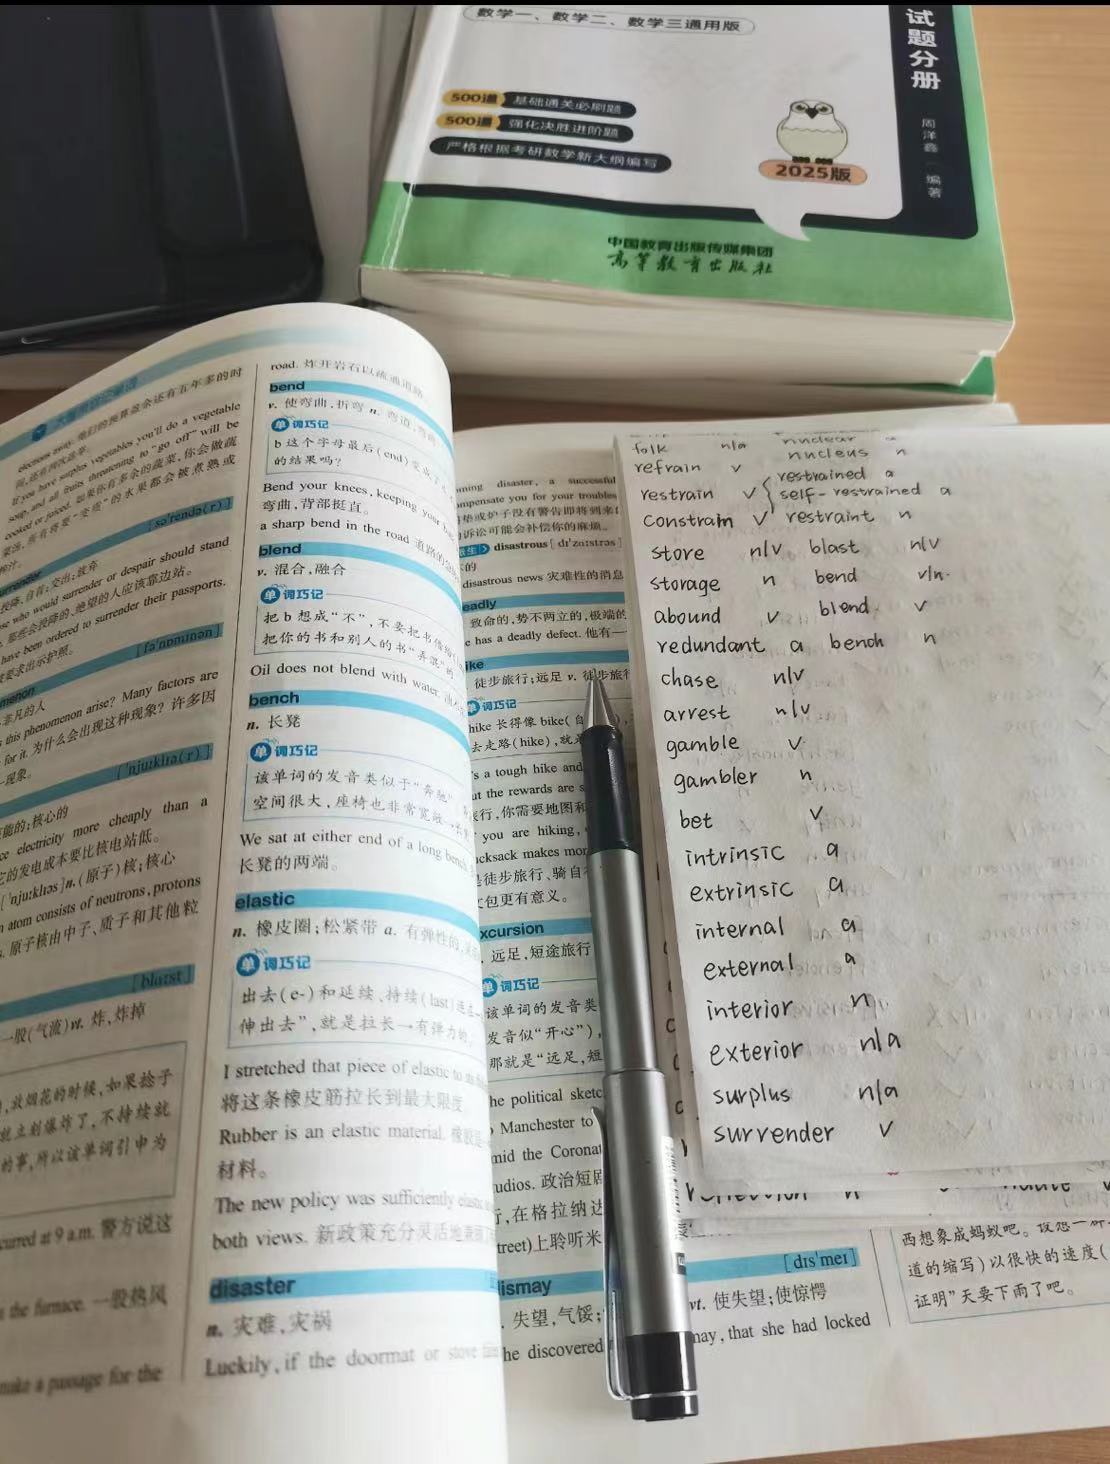 数学一、数学二、数学三通用版
500道 基础通关必刷题
500道 强化决胜进阶题
严格根据考研数学新大纲编写
2025版
试题分册
周洋鑫 编著
中国教育出版传媒集团
高等教育出版社
elections away. 他们的预算盈余还有五年多的时
间,还有两次选举。
If you have surplus vegetables you'll do a vegetable
soup, and all fruits threatening to "go off" will be
cooked or juiced. 如果你有多余的蔬菜,你会做蔬
菜汤,所有将要"变质"的水果都会被煮熟或
榨汁。
[sə'rendə(r)]
投降,自首;交出;放弃
se who would surrender or despair should stand
那些会投降的、绝望的人应该靠边站。
have been ordered to surrender their passports.
要求出示护照。
[fə'nɒmɪnən]
非凡的人
this phenomenon arise? Many factors are
for it. 为什么会出现这种现象? 许多因
现象。
['njuːklɪə(r)]
能的;核心的
ce electricity more cheaply than a
它的发电成本要比核电站低。
['njuːklɪəs]n.(原子)核;核心
atom consists of neutrons, protons
原子核由中子、质子和其他粒
[blɑːst]
一股(气流)vt. 炸,炸掉
,放烟花的时候,如果捻子
就立刻爆炸了,不持续就
的事,所以该单词引申为
curred at 9 a.m. 警方说这
the furnace. 一股热风
make a passage for the
road. 炸开岩石以疏通道路
bend
v. 使弯曲,折弯 n. 弯道,弯曲
单词巧记
b 这个字母最后(end)变成了
的结果吗?
Bend your knees, keeping your
弯曲,背部挺直。
a sharp bend in the road 道路的
blend
v. 混合,融合
单词巧记
把 b 想成"不",不要把书借给
把你的书和别人的书"弄混"的
Oil does not blend with water.
bench
n. 长凳
单词巧记
该单词的发音类似于"奔驰"
空间很大,座椅也非常宽敞
We sat at either end of a long bench
长凳的两端。
elastic
n. 橡皮圈;松紧带 a. 有弹性的
单词巧记
出去(e-)和延续、持续(last)
伸出去",就是拉长→有弹力的
I stretched that piece of elastic to
将这条橡皮筋拉长到最大限度
Rubber is an elastic material. 橡胶是
材料。
The new policy was sufficiently elastic
both views. 新政策充分灵活地
disaster
n. 灾难,灾祸
Luckily, if the doormat or stove
ming disaster, a successful
mpensate you for your troubles
垫或炉子没有警告即将到来
诉讼可能会补偿你的麻烦。
disastrous [dɪ'zɑːstrəs]
的
disastrous news 灾难性的消息
eadly
致命的,势不两立的,极端的
has a deadly defect. 他有一
ike
徒步旅行;远足 v. 徒步旅行
单词巧记
hike 长得像 bike(自
去走路(hike),就
's a tough hike and
ut the rewards are s
旅行,你需要地图和
you are hiking,
ucksack makes mor
是徒步旅行、骑自
包更有意义。
xcursion
远足,短途旅行
单词巧记
该单词的发音类
发音似"开心"),
那就是"远足,短
he political sketc
Manchester to
mid the Coronat
udios. 政治短剧
行,在格拉纳达
treet)上聆听米
ismay
失望,气馁;
he discovered
[dɪs'meɪ]
vt. 使失望;使惊愕
may, that she had locked
西想象成蚂蚁吧。设想一
道的缩写)以很快的速度(
证明"天要下雨了吧。
folk n/a nuclear a
nucleus n
refrain v
restrained a
restrain v self-restrained a
constrain v restraint n
store n/v blast n/v
storage n bend v/n.
abound v blend v
redundant a bench n
chase n/v
arrest n/v
gamble v
gambler n
bet v
intrinsic a
extrinsic a
internal a
external a
interior n
exterior n/a
surplus n/a
surrender v